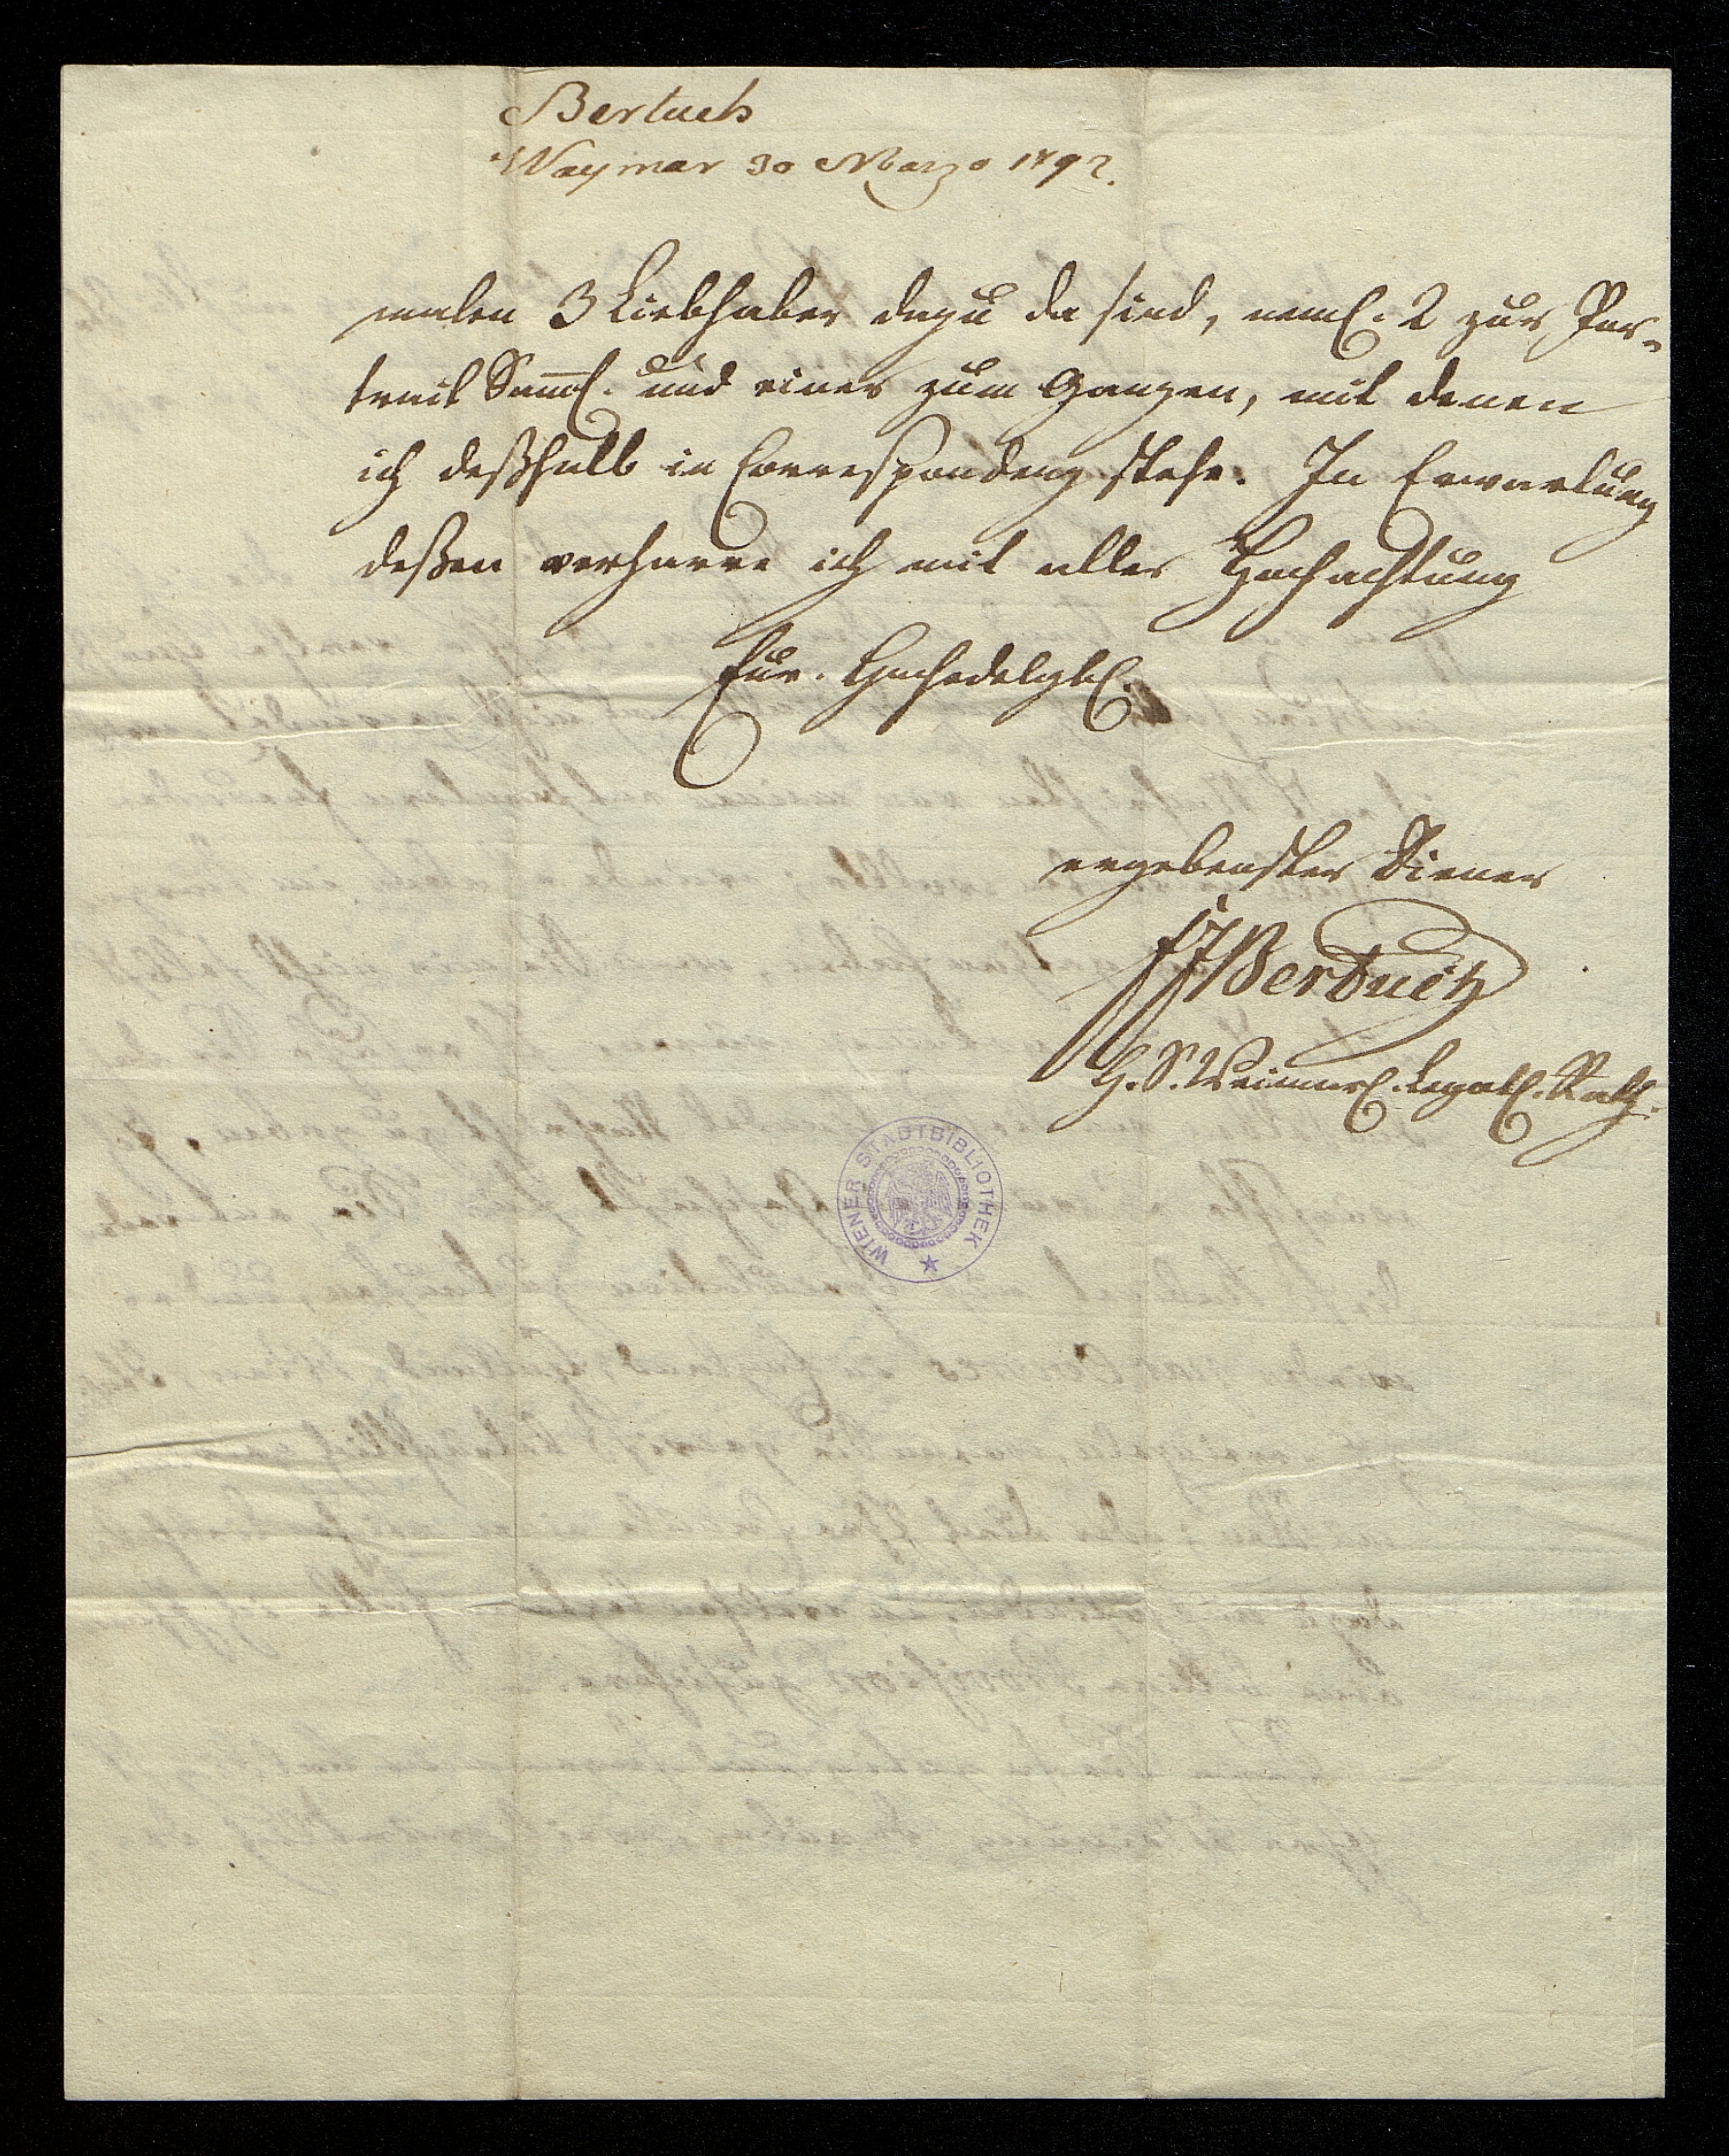 Bertuch
Waymar 30 Marzo 1792.
malen 3 Liebhaber dazu da sind, neml. 2 zur Por-
trait Samml. und einer zum Ganzen, mit denen
ich deßhalb in Correspondenz stehe. In Erwartung
deßen verharre ich mit aller Hochachtung
Eur. Hochedelgeb.
ergebenster Diener
FJBertuch
H. S. Weimarl. Legat. Rath.
WIENER STADTBIBLIOTHEK